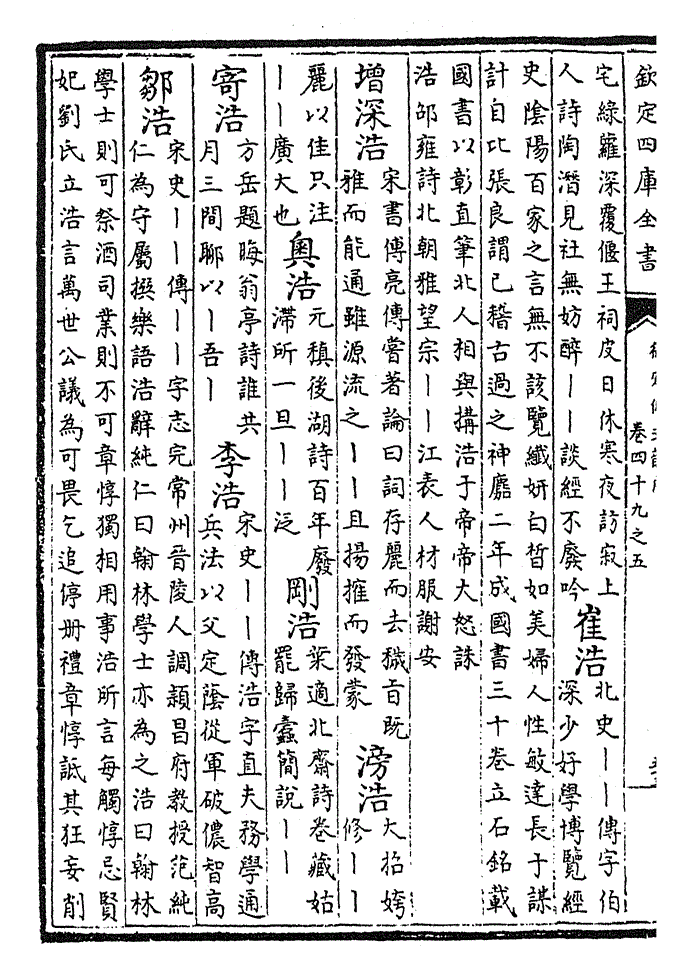 欽定四庫全書
卷四十九之五
宅綠蘿深覆偃王祠皮日休寒夜訪寂上
人詩陶潛見社無妨醉丨丨談經不廢吟
崔浩
北史丨丨傳字伯
深少好學博覽經
史陰陽百家之言無不該覽纖妍白皙如美婦人性敏達長于謀
計自比張良謂已稽古過之神䴥二年成國書三十卷立石銘載
國書以彰直筆北人相與搆浩于帝帝大怒誅
浩邵雍詩北朝雅望宗丨丨江表人材服謝安
增深浩
宋書傅亮傳嘗著論曰詞存麗而去穢旨既
雅而能通雖源流之丨丨且揚搉而發蒙
滂浩
大招姱
修丨丨
麗以佳只注
丨丨廣大也
奧浩
元稹後湖詩百年廢
滯所一旦丨丨泛
剛浩
葉適北齋詩卷藏姑
罷歸蠹簡說丨丨
寄浩
方岳題晦翁亭詩誰共
月三間聊以丨吾丨
李浩
宋史丨丨傳浩字直夫務學通
兵法以父定蔭從軍破儂智高
鄒浩
宋史丨丨傳丨丨字志完常州晉陵人調潁昌府教授范純
仁為守屬撰樂語浩辭純仁曰翰林學士亦為之浩曰翰林
學士則可祭酒司業則不可章惇獨相用事浩所言每觸惇忌賢
妃劉氏立浩言萬世公議為可畏乞追停冊禮章惇詆其狂妄削